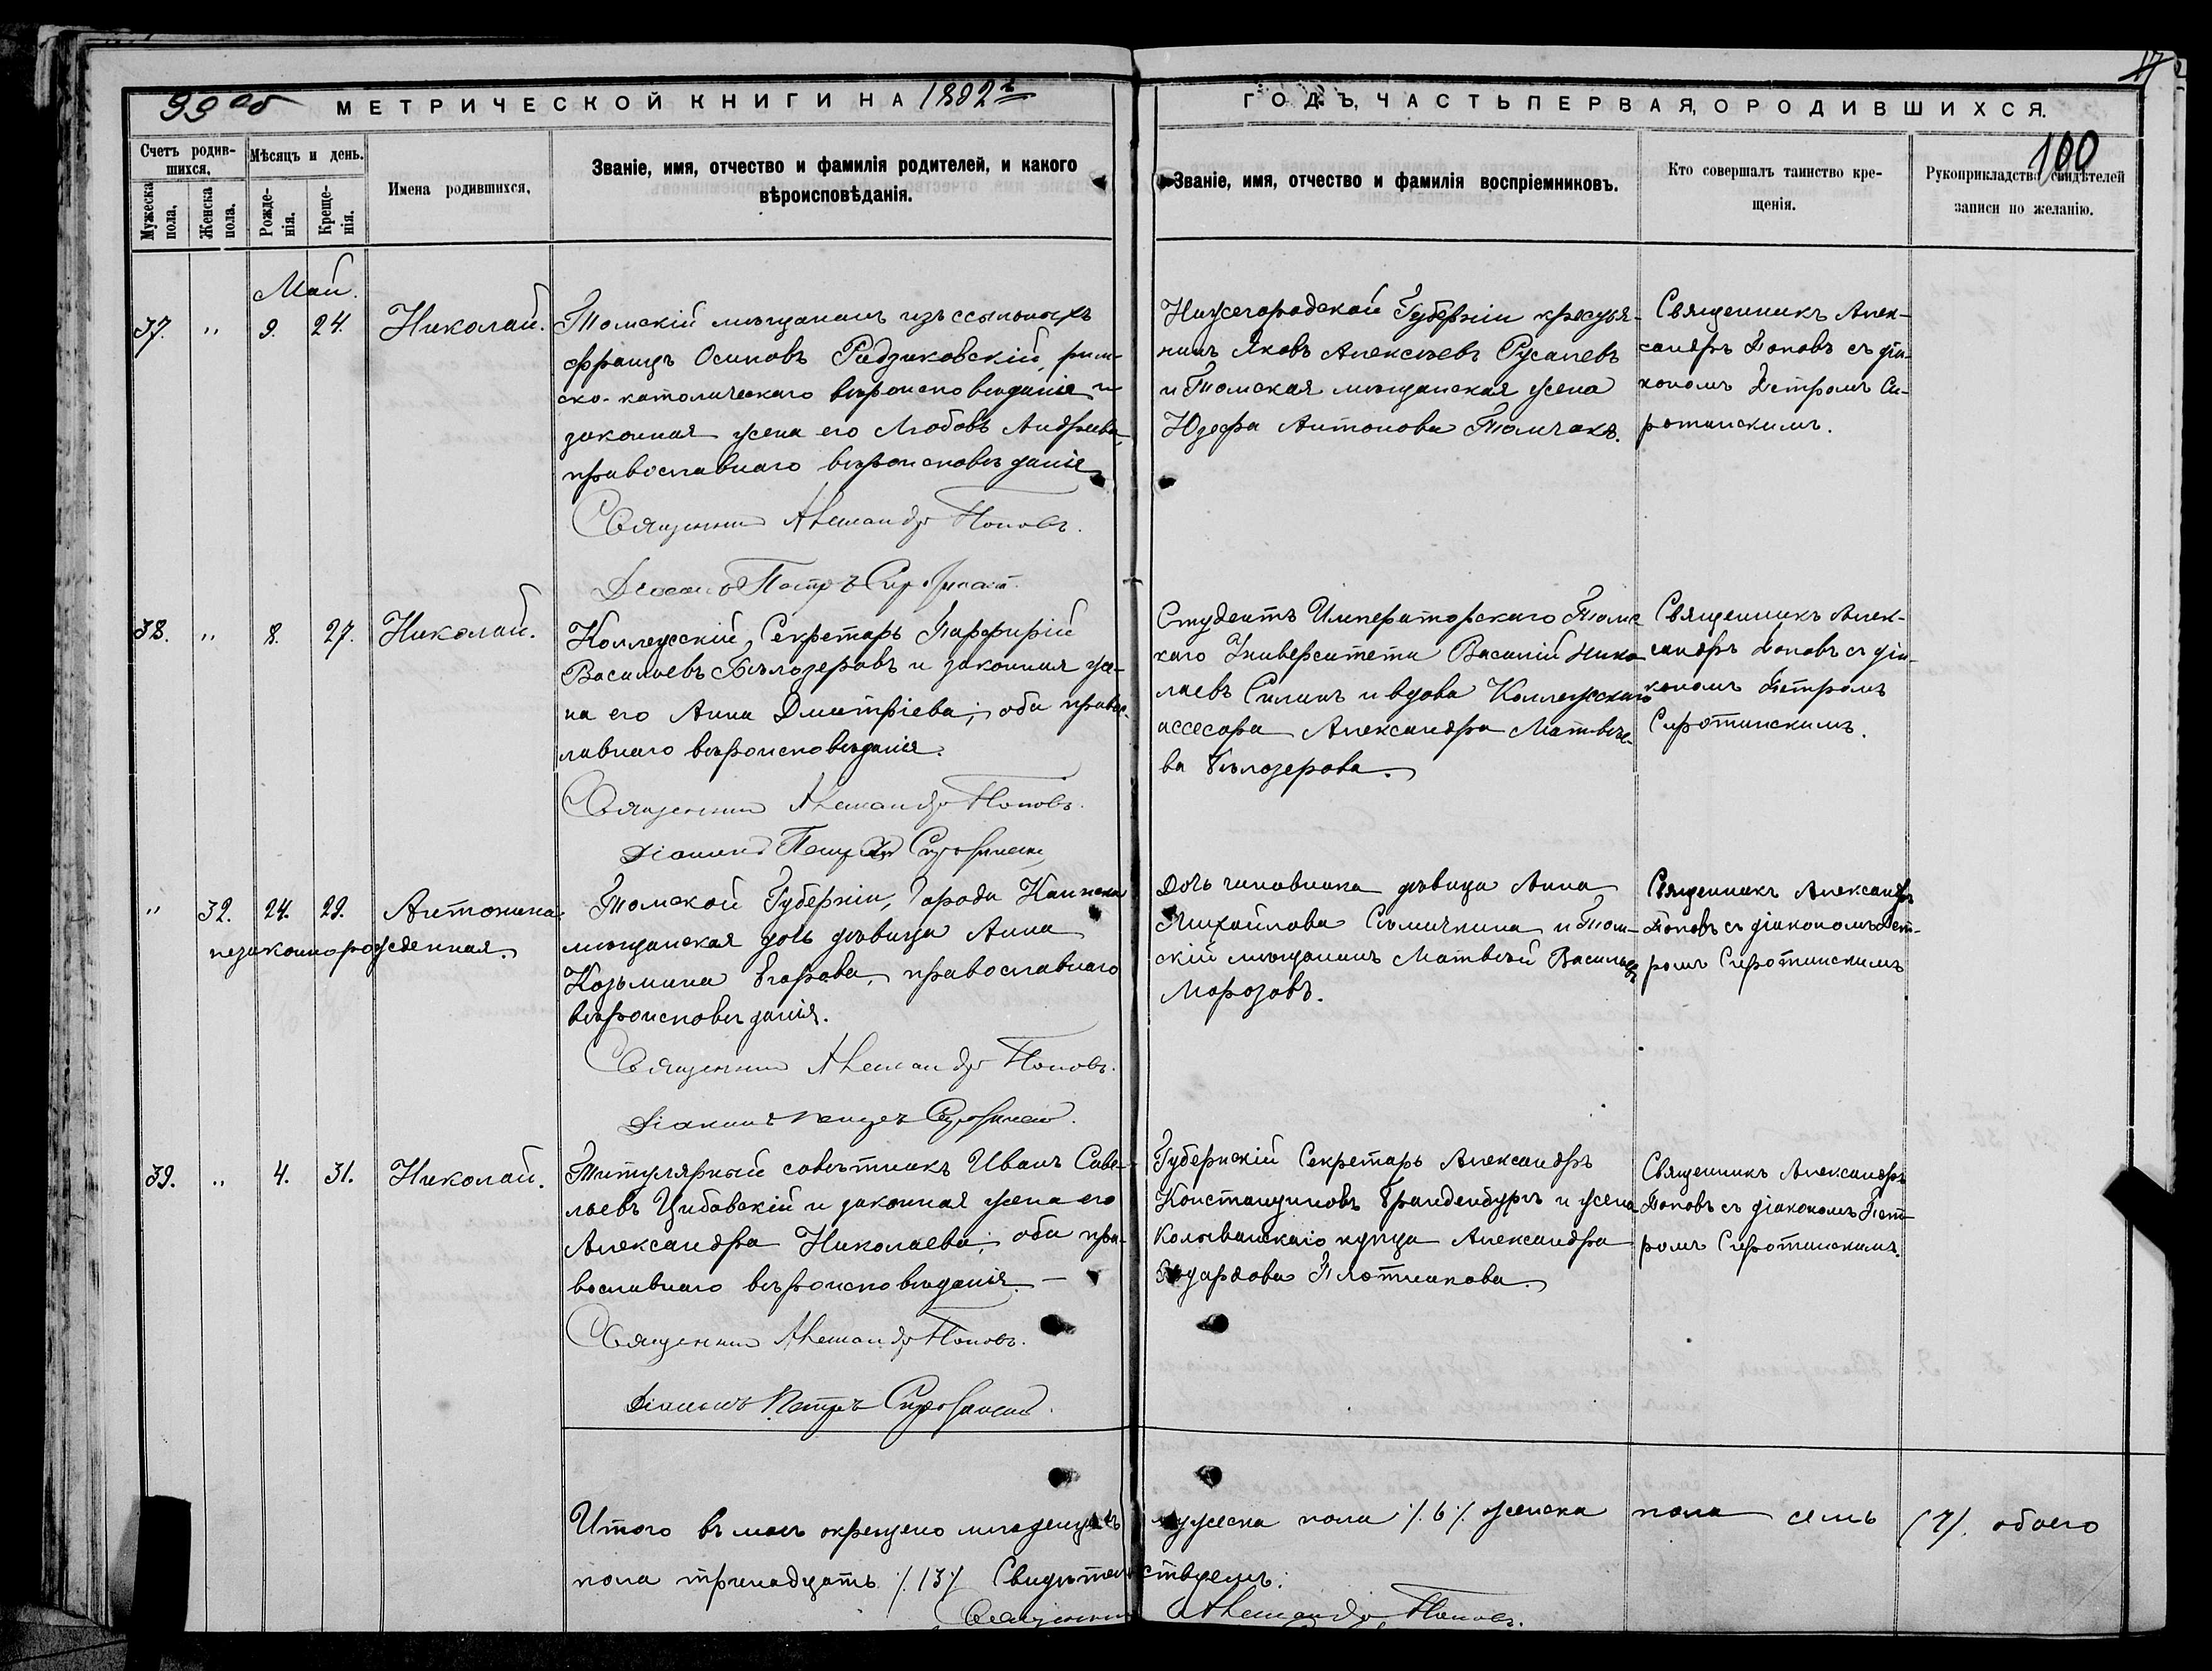 99 об МЕТРИЧЕСКОЙ КНИГИ НА 1892 й
Счетъ родив-
шихся.
Мѣсяцъ и день.
Мужеска пола.
Женска пола.
Рожде-
нія.
Креще-
нія.
Имена родившихся.
Званіе, имя, отчество и фамилія родителей, и какого
вѣроисповѣданія.
Май.
37. " 9. 24. Николай.
Томскій мѣщанинъ изъ ссыльныхъ
Францъ Осиповъ Радзиковскій, рим-
ско-католическаго вѣроисповѣданія и
законная жена его Любовь Андреева,
православнаго вѣроисповѣданія
Священникъ Александръ Поповъ.
Діаконъ Петръ Сиротинскій.
38. " 8. 27. Николай.
Коллежскій Секретарь Парфирій
Васильевъ Бѣлозеровъ и законная же-
на его Анна Дмитріева; оба правос-
лавнаго вѣроисповѣданія.
Священникъ Александръ Поповъ.
Діаконъ Петръ Сиротинскій
" 32. 24. 29. Антонина
незаконнорожденная.
Томской Губерніи, Города Каинска
мѣщанская дочь дѣвица Анна
Козьмина Егорова, православнаго
вѣроисповѣданія.
Священникъ Александръ Поповъ.
Діаконъ Петръ Сиротинскій.
39. " 4. 31. Николай.
Титулярный совѣтникъ Иванъ Саве-
льевъ Цибовскій и законная жена его
Александра Николаева; оба пра-
вославнаго вѣроисповѣданія. —
Священникъ Александръ Поповъ.
Діаконъ Петръ Сиротинскій.
ГОДЪ, ЧАСТЬ ПЕРВАЯ, О РОДИВШИХСЯ.
100
Званіе, имя, отчество и фамилія воспріемниковъ.
Кто совершалъ таинство кре-
щенія.
Рукоприкладство свидѣтелей
записи по желанію.
Нижегородской Губерніи крестья-
нинъ Яковъ Алексѣевъ Русаневъ
и Томская мѣщанская жена
Юзефа Антонова Томчакъ.
Священникъ Алек-
сандръ Поповъ съ діа-
кономъ Петромъ Си-
ротинскимъ.
Студентъ Императорскаго Томс
каго Университета Василій Нико
лаевъ Силинъ и вдова Коллежскаго
ассесора Александра Матвѣе-
ва Бѣлозерова.
Священникъ Алек-
сандръ Поповъ съ діа-
кономъ Петромъ
Сиротинскимъ.
Дочь чиновника дѣвица Анна
Михайлова Сѣмичкина и Том-
скій мѣщанинъ Матвѣй Васильевъ
Морозовъ.
Священникъ Александръ
Поповъ съ діакономъ Пет-
ромъ Сиротинскимъ
Губернскій Секретарь Александръ
Константиновъ Бранденбургъ и жена
Колыванскаго купца Александра
Эдуардова Плотникова.
Священникъ Александръ
Поповъ съ діакономъ Пет-
ромъ Сиротинскимъ.
Итого въ маѣ окрещено младенцевъ мужеска пола /.6/. женска пола семь (7). обоего
пола тринадцать /.13/. Свидѣтельствуемъ:
Священникъ Александръ Поповъ.